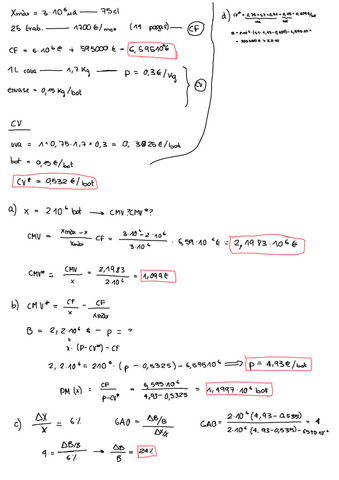 Xmáx = 3·10⁶ uds —— 75cl
25 trab. —— 1700€/mes (14 pagas) CF
CF = 6·10⁶€ + 595000€ = 6,595·10⁶
1L cava —— 1,7Kg —— p = 0,3€/Kg
envase = 0,15€/bot
CV
CV
uva = 1·0,75·1,7·0,3 = 0,3825€/bot
bot = 0,15€/bot
CV* = 0,532€/bot
a) x = 2·10⁶ bot → CMV? CMV*?
CMV = (xmáx - x)/xmáx CF = (3·10⁶ - 2·10⁶)/(3·10⁶) · 6,59·10⁶€ = 2,1983·10⁶€
CMV* = CMV/x = 2,1983/2·10⁶ = 1,099€
b) CMV* = CF/x - CF/xmáx
B = 2,2·10⁶€ - p = ?
x·(P-CV*) - CF
2,2·10⁶ = 2·10⁶·(p - 0,5325) - 6,595·10⁶ ⟹ p = 4,93€/bot
PM(x) = CF/(P-CV*) = 6,595·10⁶/(4,93-0,5325) = 1,4997·10⁶ bot
c) ΔX/X = 6% GAO = (ΔB/B)/(ΔX/X) GAO = 2·10⁶(4,93-0,535)/(2·10⁶(4,93-0,535)-6,595·10⁶) = 4
4 = (ΔB/B)/6% → ΔB/B = 24%
d)